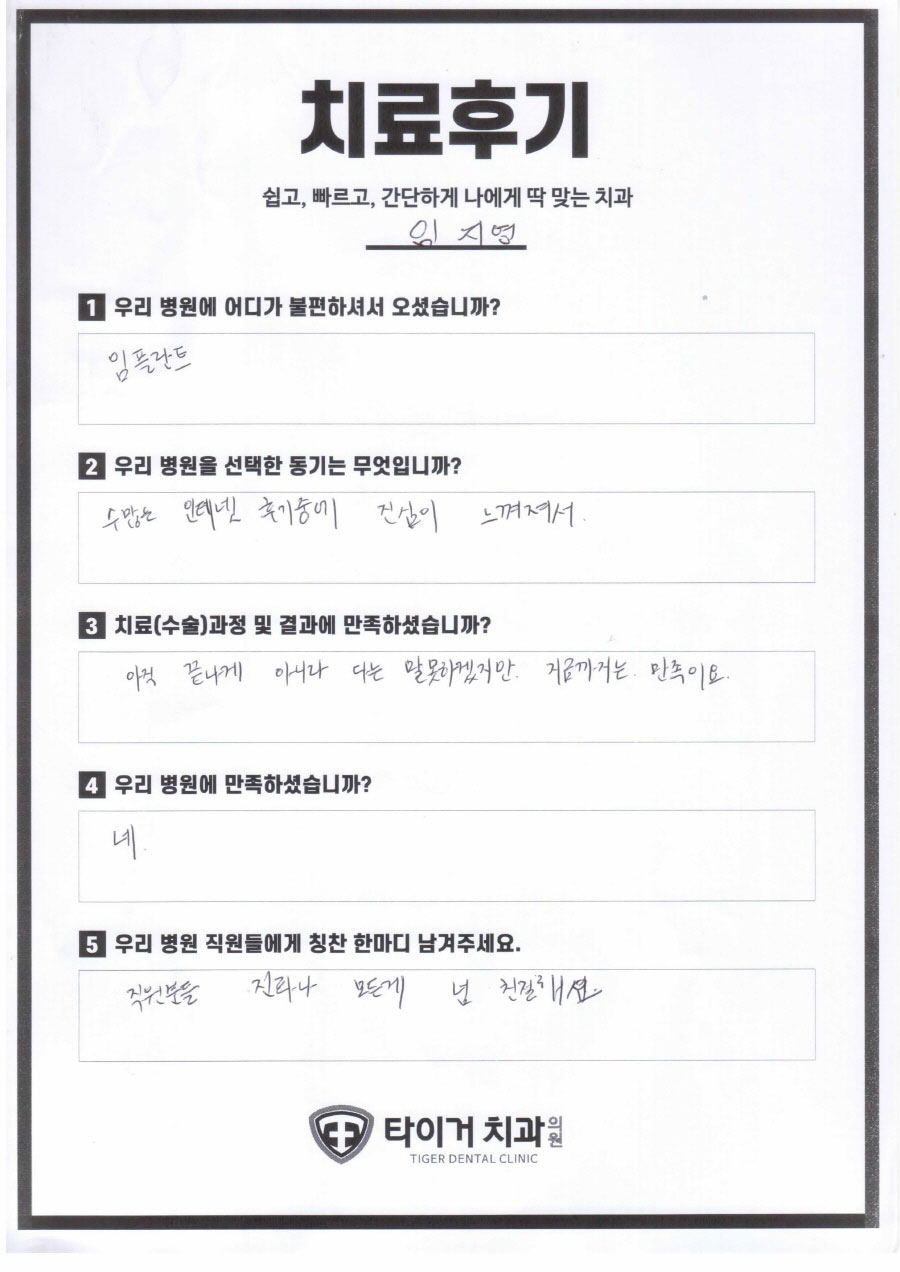 치료후기
쉽고, 빠르고, 간단하게 나에게 딱 맞는 치과
임지영
1 우리 병원에 어디가 불편하셔서 오셨습니까?
임플란트
2 우리 병원을 선택한 동기는 무엇입니까?
수많은 인테넷 후기중에 진심이 느껴져서.
3 치료(수술)과정 및 결과에 만족하셨습니까?
아직 끝나게 아니라 다는 말못하겠지만. 지금까지는. 만족이요.
4 우리 병원에 만족하셨습니까?
네.
5 우리 병원 직원들에게 칭찬 한마디 남겨주세요.
직원분들 진료나 모든게 넘 친절해요
타이거 치과의원
TIGER DENTAL CLINIC